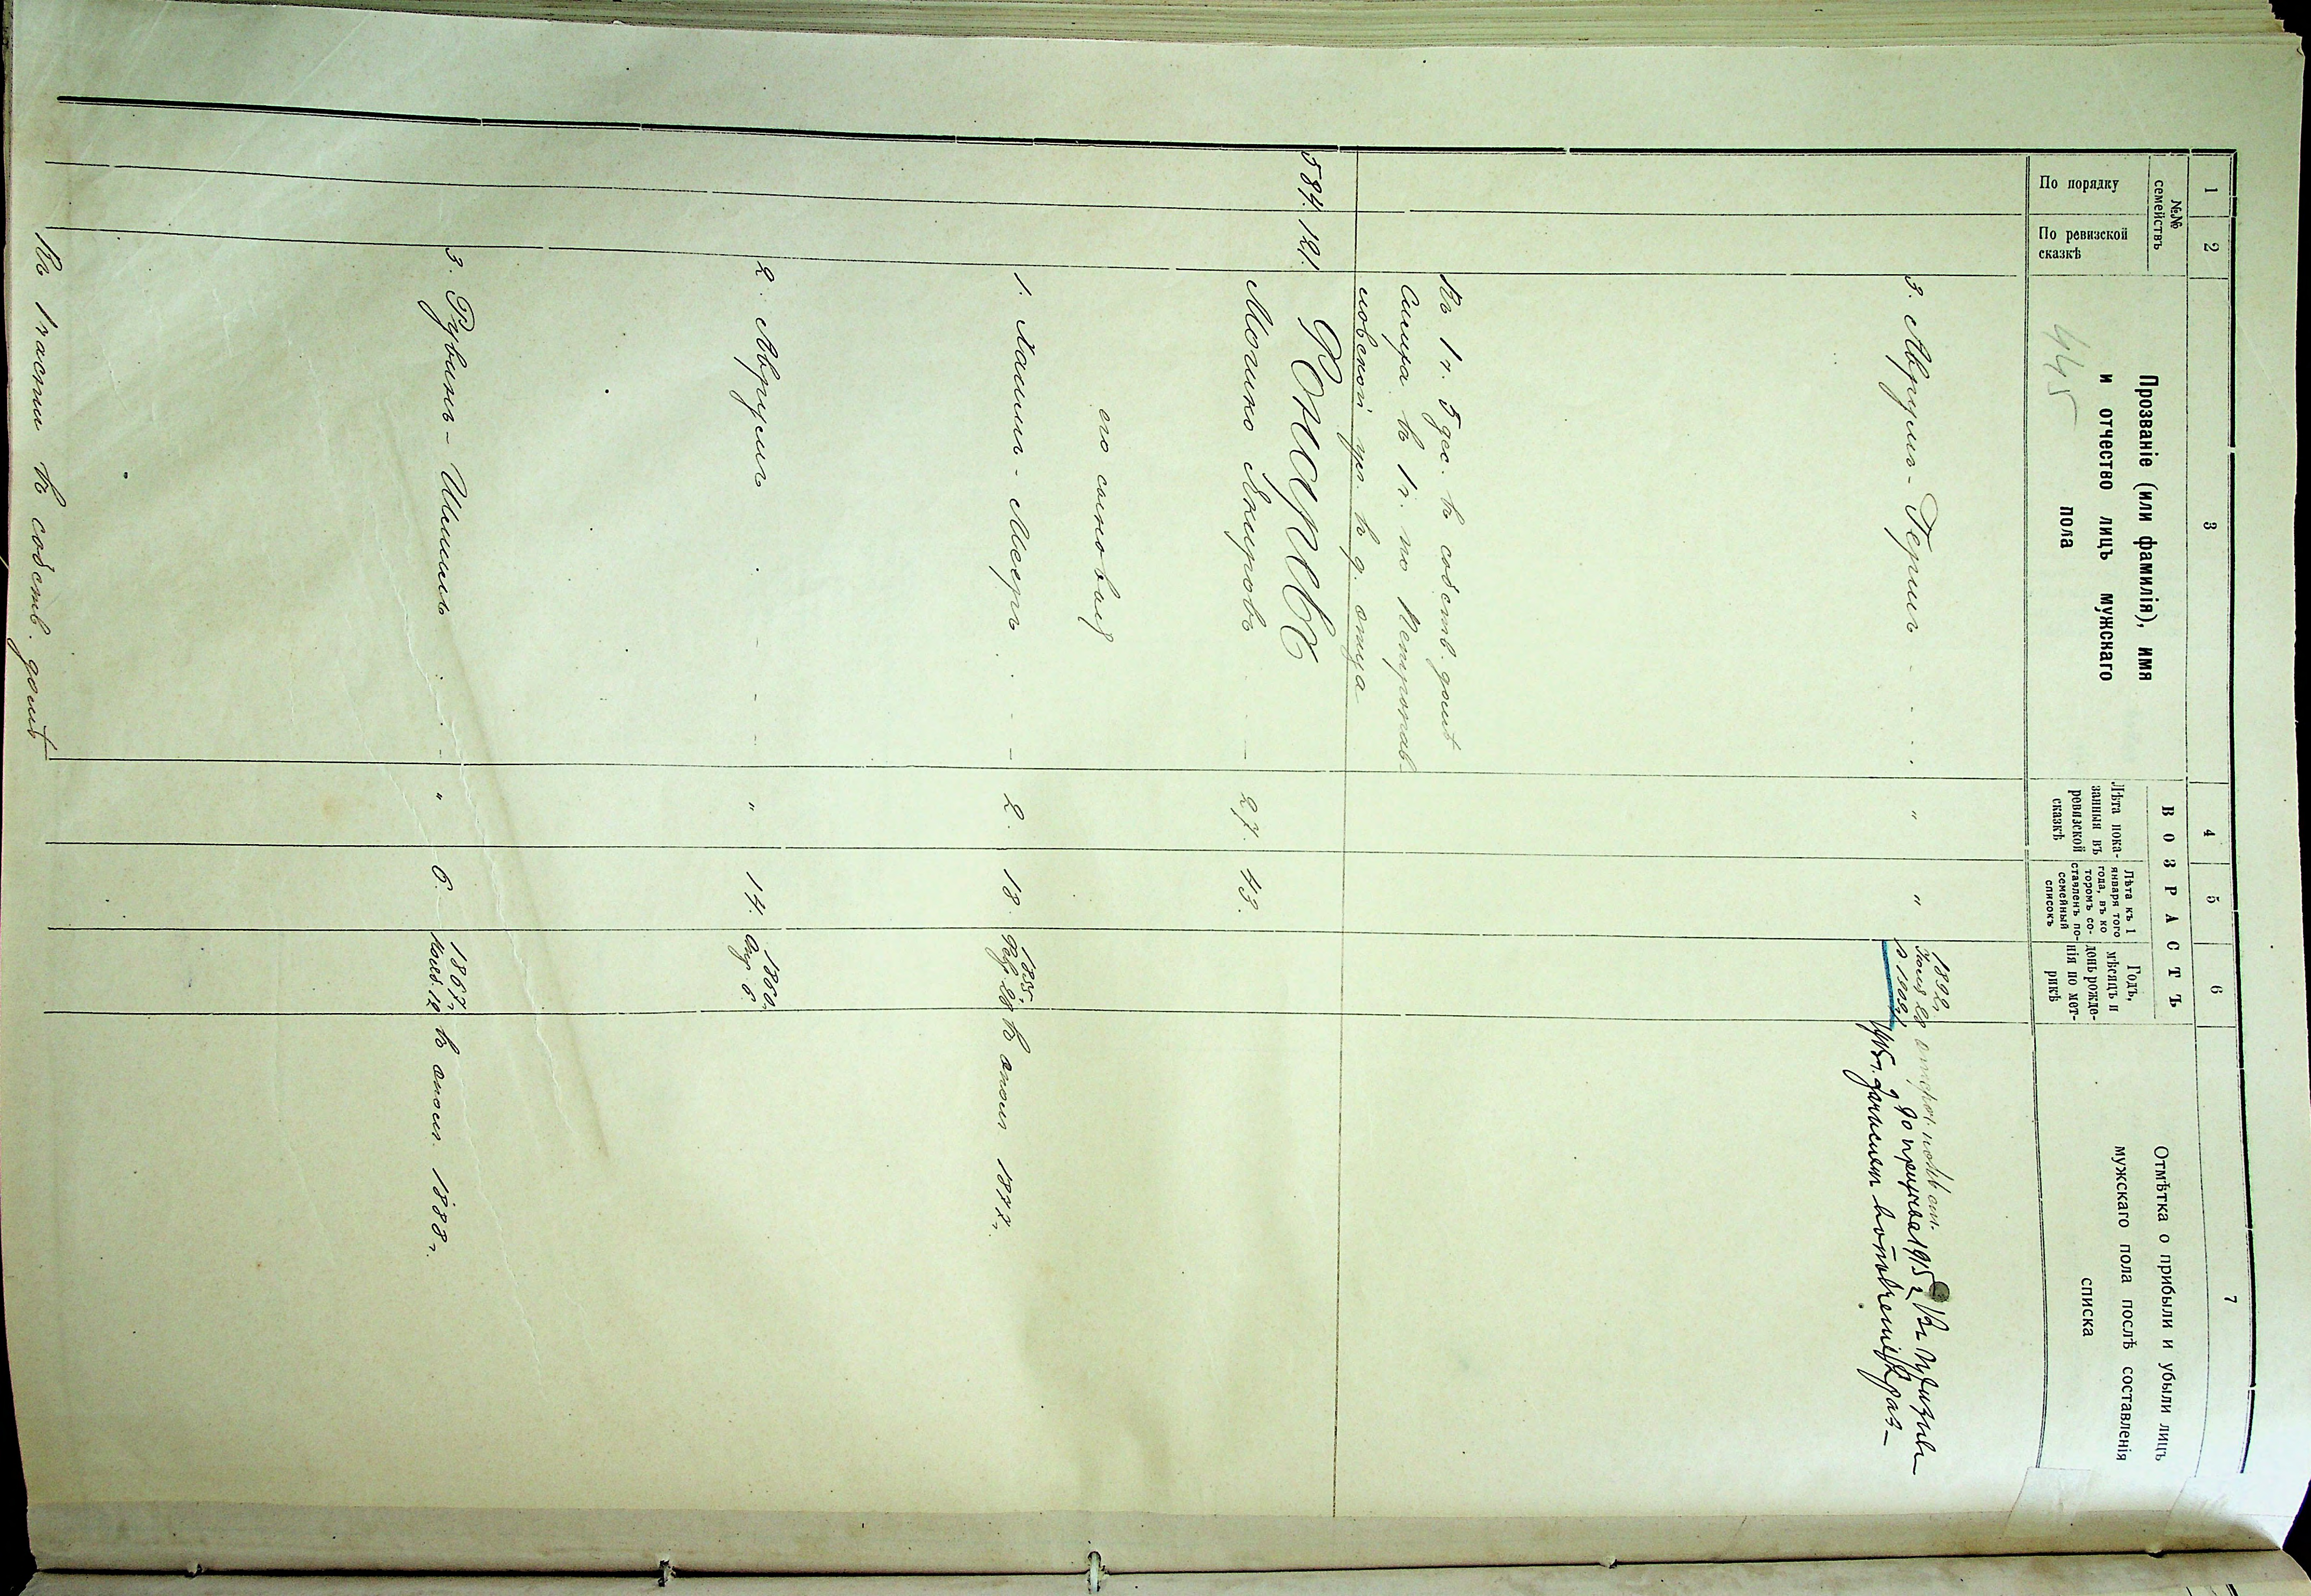 1 2 3 4 5 6 7
№№ семействъ
По порядку
По ревизской сказкѣ
Прозваніе (или фамилія), имя
и отчество лицъ мужскаго
пола
445
ВОЗРАСТЪ
Лѣта пока-
занныя въ
ревизской
сказкѣ
Лѣта къ 1
января того
года, въ ко
торомъ со-
ставленъ по-
семейный
списокъ
Годъ,
мѣсяцъ и
день рожде-
нія по мет-
рикѣ
Отмѣтка о прибыли и убыли лицъ
мужскаго пола послѣ составленія
списка
3. Аврумъ-Гершъ - . . . " " 1892г.
до призыва 1915 г.
1915г.
Въ 1 ч. 5 дес. въ собств. домѣ
Симха въ 1 ч. по
ул. въ д. отца
584. 121. Гончаръ
Мошко Янкировъ - 27. 43.
его сыновья
1. Хаимъ-Мееръ . . - - 2. 18. 1855г.
Февр. 28 въ апол 1877г.
2. Аврумъ . - - - " 14. 1860г.
Апр. 6.
3. Рувинъ-Шмилъ . . - " 6. 1867г.
Нояб. 12 въ апол. 1888г.
Въ 1 части въ собств. домѣ